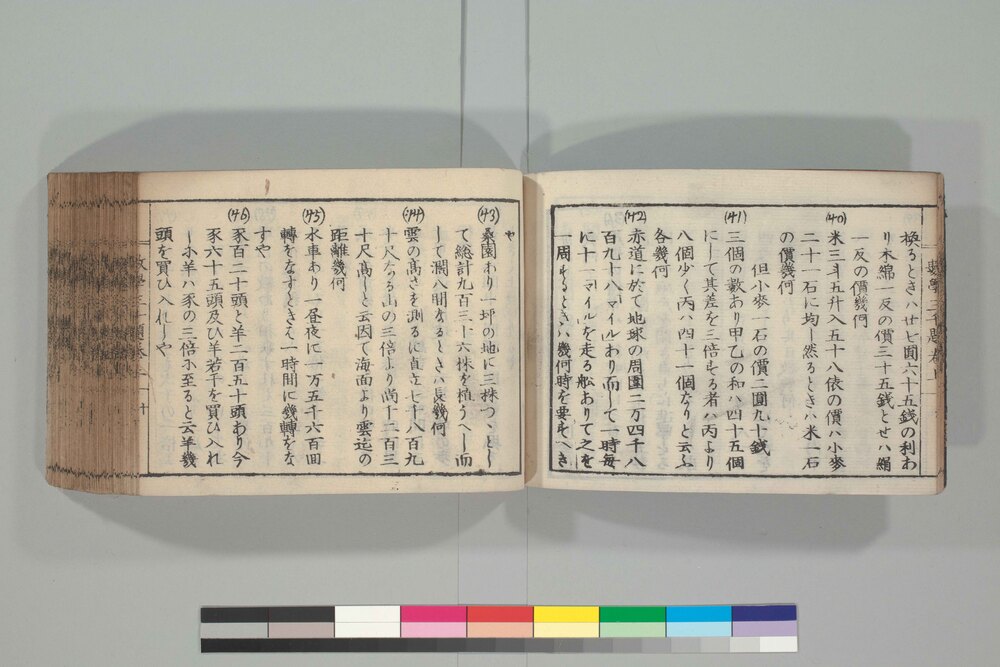 換るときハ廿七圓六十五錢の利わ
り木綿一反の價三十五錢とせハ絹
一反の價幾何
(40)
米三斗五升入五十八俵の價ハ小麥
二十一石に均し然るときハ米一石
の價幾何
但小麥一石の價二圓九十錢
(41)
三個の數あり甲乙の和ハ四十五個
にして其差を三倍する者ハ丙より
八個少く丙ハ四十一個なりと云ふ
各幾何
(42)
赤道に於て地球の周圍二万四千八
百九十八マイルあり而して一時毎
に十一マイルを走る舩ありて之を
一周するときハ幾何時を要すへき
や
(43)
桑園あり一坪の地に三株つゝとし
て総計九百三十六株を植うへし而
して濶八間なるときハ長幾何
(44)
雲の高さを測るに直立七千八百九
十尺なる山の三倍より尚十二百三
十尺高しと云因て海面より雲迄の
距離幾何
(45)
水車あり一昼夜に一万五千六百回
轉をなすときハ一時間に幾轉をな
すや
(46)
豕百二十頭と羊二百五十頭あり今
豕六十五頭及ひ羊若干を買ひ入れ
し小羊ハ豕の三倍に至ると云羊幾
頭を買ひ入れしや